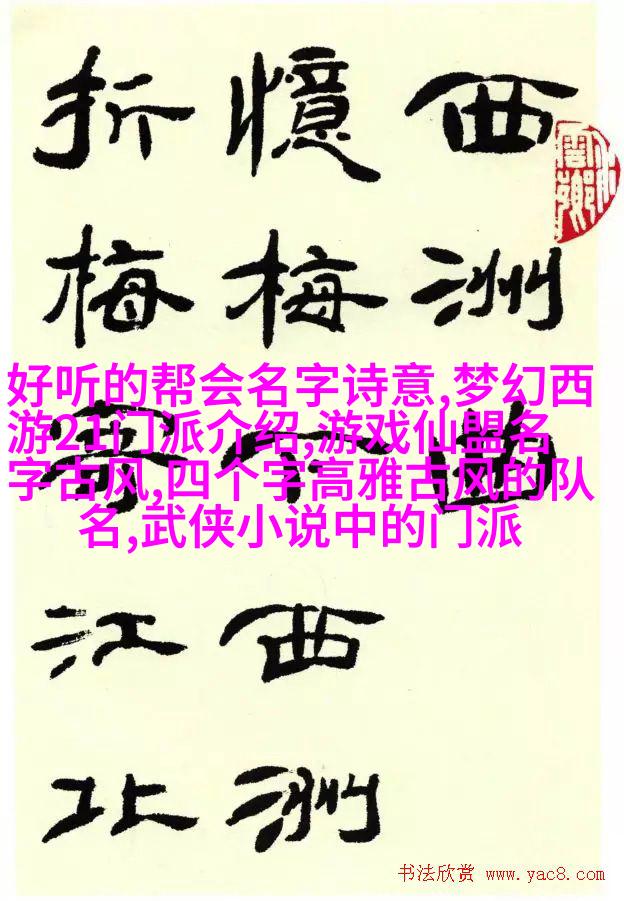 西洲曲
憶梅下西洲
折梅寄江北
好听的帮会名字诗意,梦幻西
游21门派介绍,游戏仙盟名
字古风,四个字高雅古风的队
名,武侠小说中的门派
书法欣赏 www.yac8.com